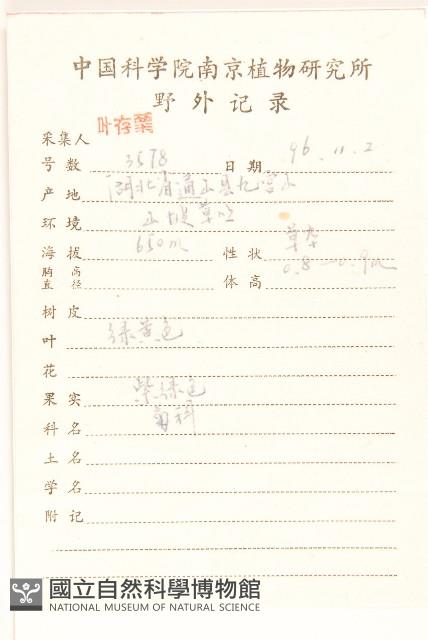 中国科学院南京植物研究所
野外记录
采集人 叶存粟
号数 3578 日期 96.11.2
产地 湖北省通山县九宫山
环境 山坡草
海拔 650m 性状 草本
胸高直径 体高 0.8—0.9m
树皮
叶 绿黄色
花
果实 紫绿色
科名 菊科
土名
学名
附记
國立自然科學博物館
NATIONAL MUSEUM OF NATURAL SCIENCE